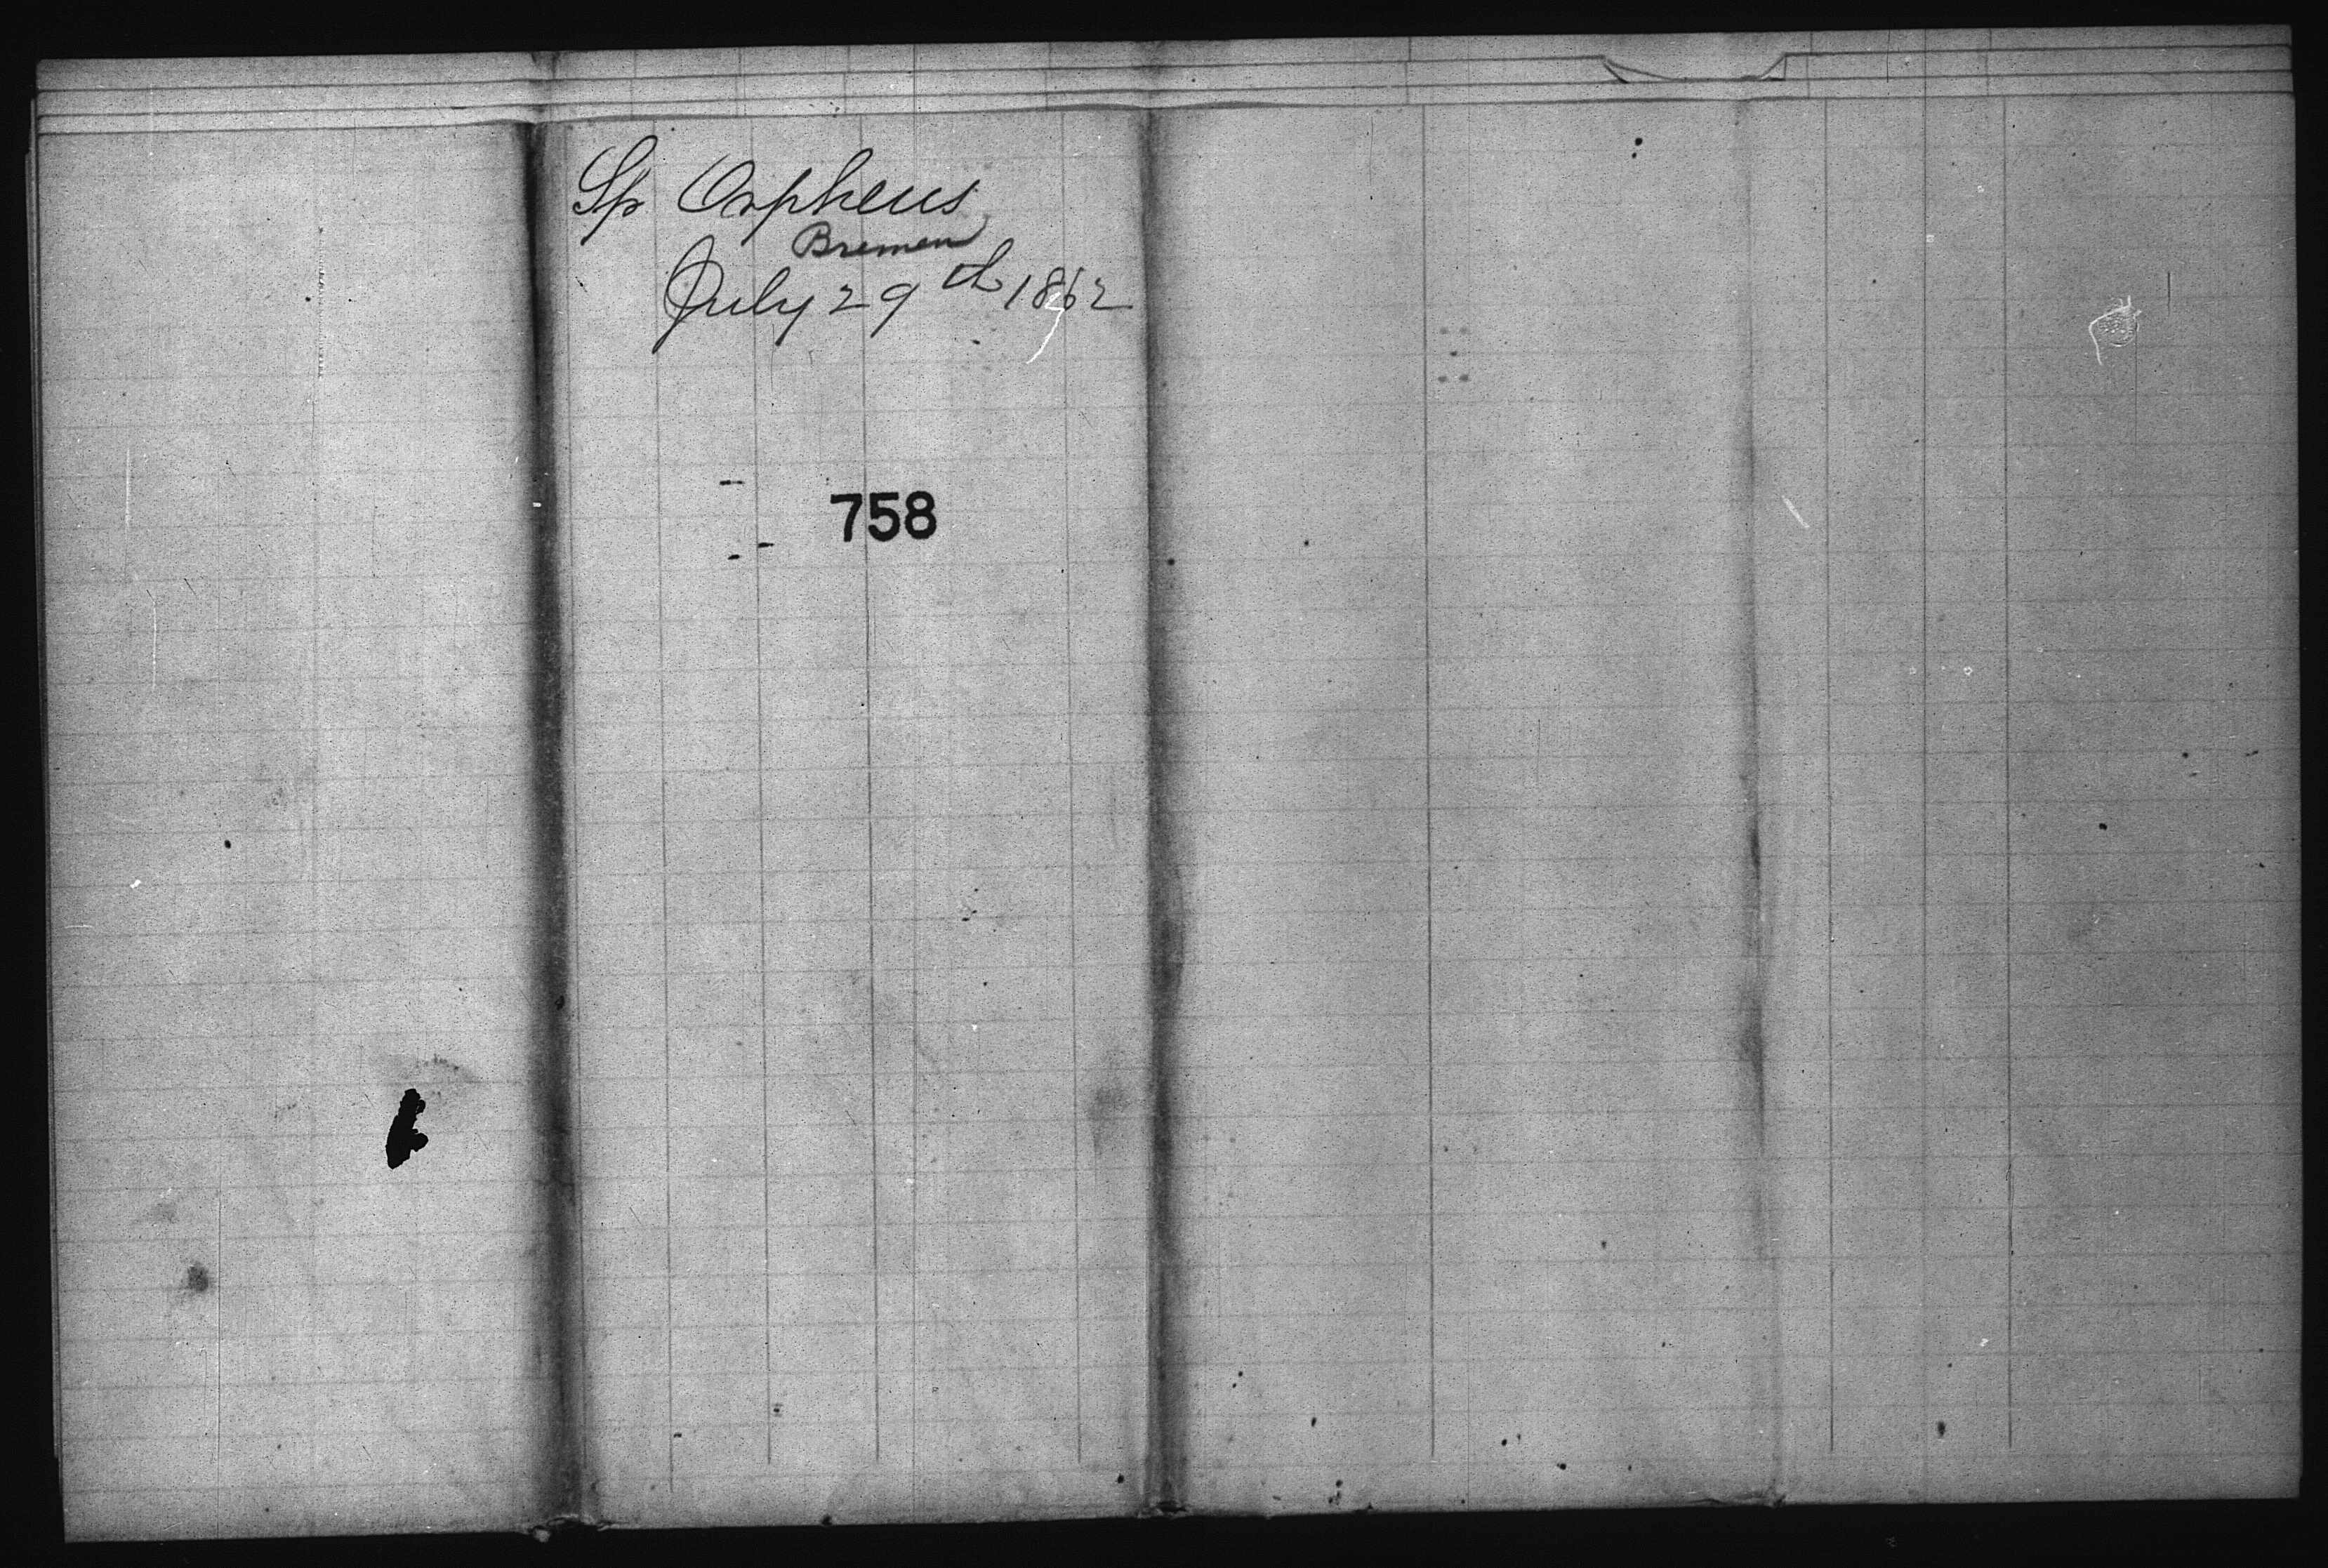 Sp Orpheus
Bremen
July 29th 1862
758